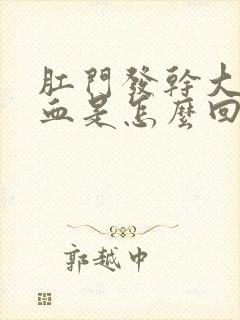 肛門發幹大
血是怎麼回
郭越中